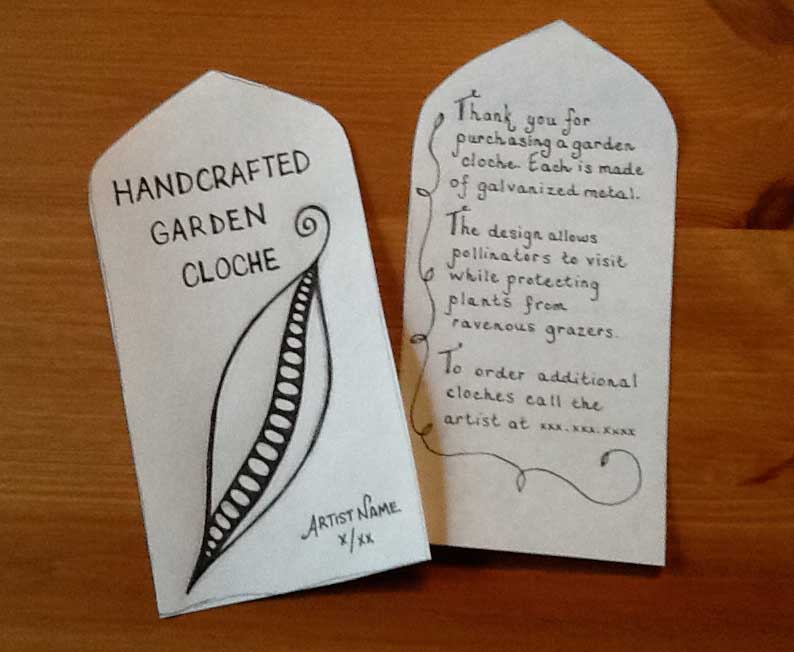 HANDCRAFTED
GARDEN
CLOCHE
ARTIST NAME
x/xx
Thank you for
purchasing a garden
cloche. Each is made
of galvanized metal.
The design allows
pollinators to visit
while protecting
plants from
ravenous grazers.
To order additional
cloches call the
artist at xxx.xxx.xxxx